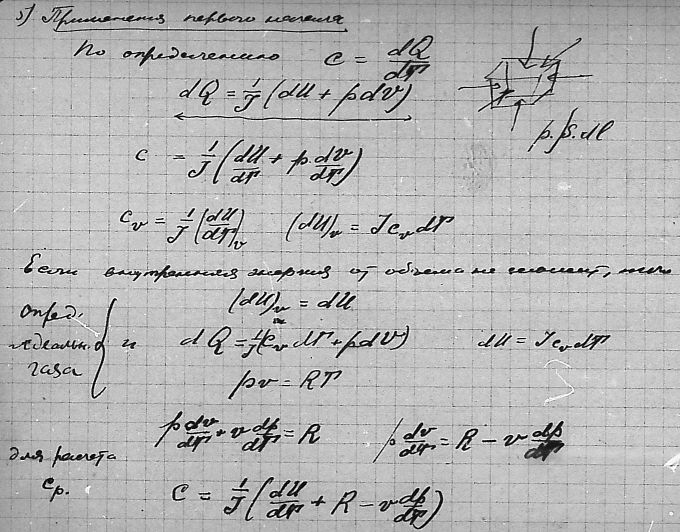 5) Применения первого начала
По определению c = dQ/dT
dQ = 1/J (dU + pdv)
p.βS.dl
c = 1/J (dU/dT + p.dv/dT)
c_v = 1/J (dU/dT)_v (dU)_v = J c_v dT
Если внутренняя энергия от объема не зависит, то
(dU)_v = dU
опред. идеальн. газа { и dQ = 1/J (c_v dT + pdV) dU = J c_v dT
pv = RT
p dv/dT + v dp/dT = R p dv/dT = R − v dp/dT
для расчета
c_p. C = 1/J (dU/dT + R − v dp/dT)